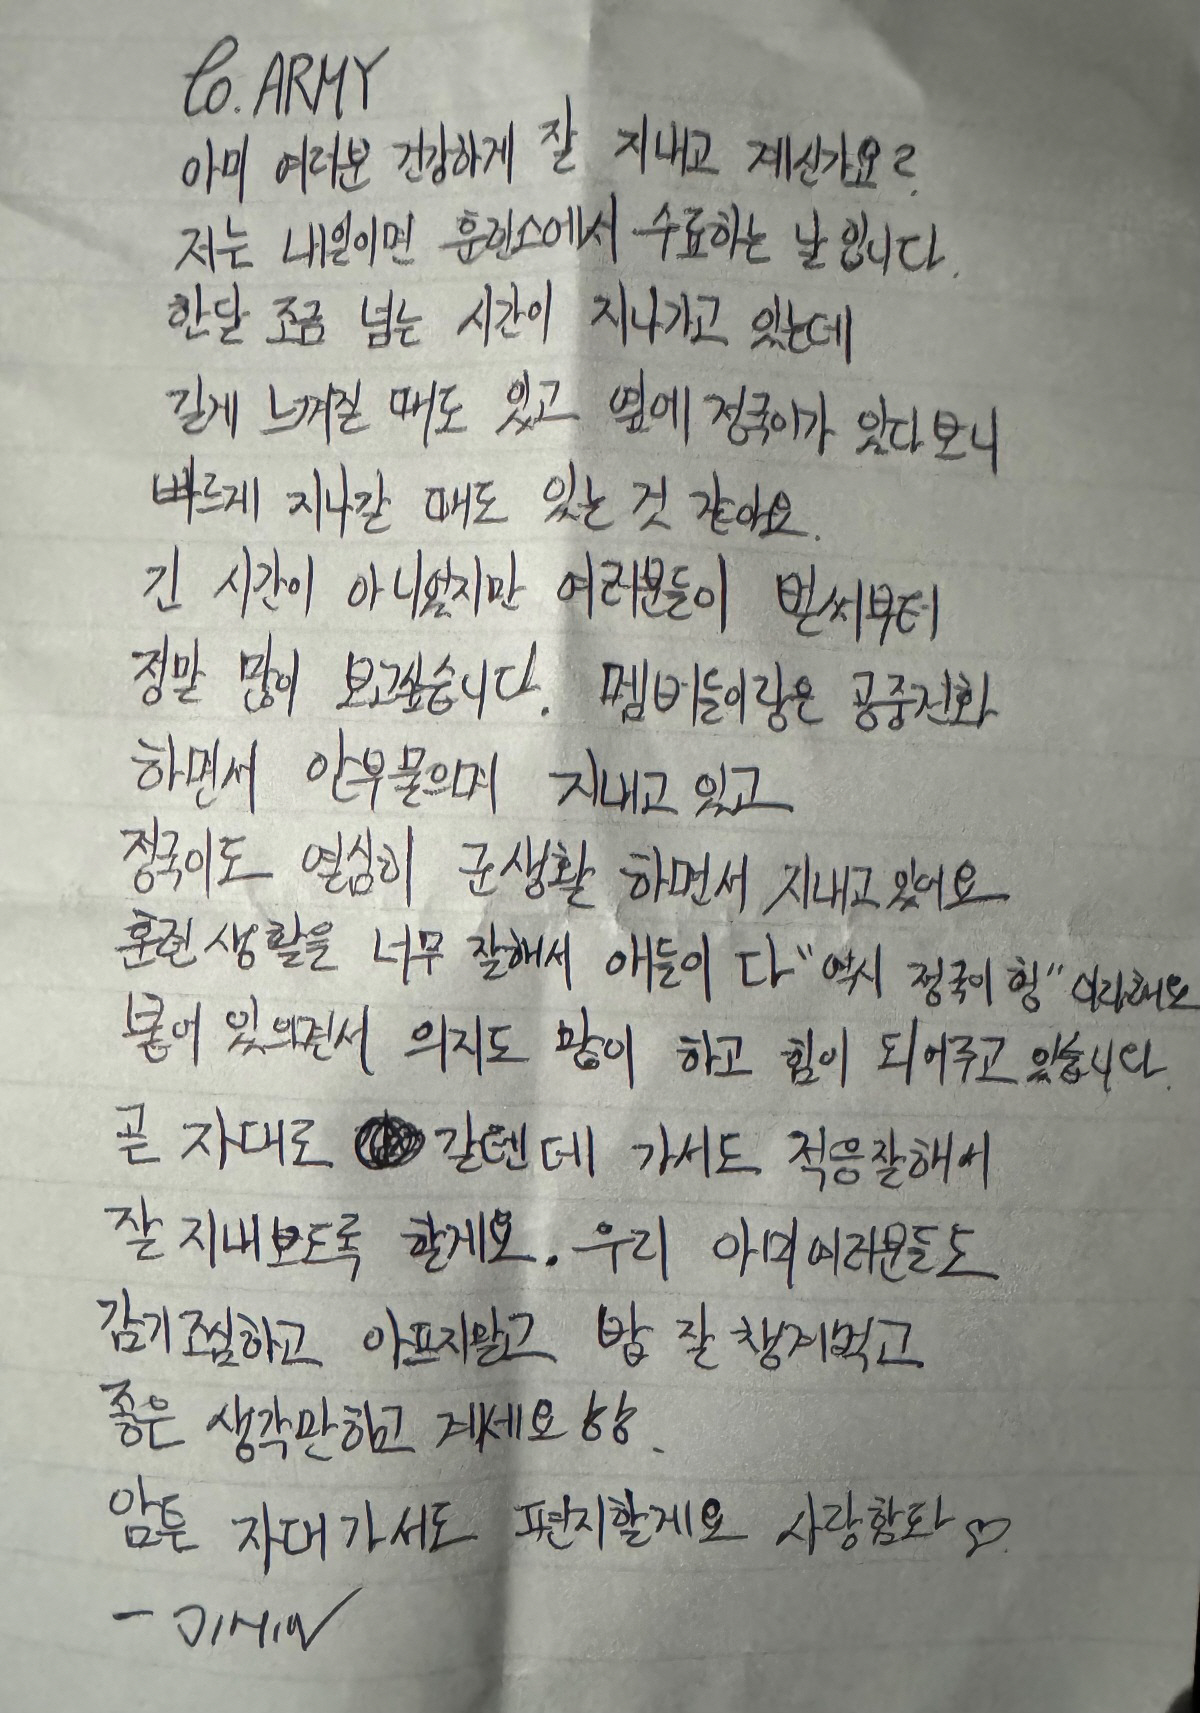 To. ARMY
아미 여러분 건강하게 잘 지내고 계신가요?
저는 내일이면 훈련소에서 수료하는 날입니다.
한달 조금 넘는 시간이 지나가고 있는데
길게 느껴질 때도 있고 옆에 정국이가 있다보니
빠르게 지나갈 때도 있는 것 같아요.
긴 시간이 아니였지만 여러분들이 벌써부터
정말 많이 보고싶습니다. 멤버들이랑은 공중전화
하면서 안부 물으며 지내고 있고
정국이도 열심히 군생활 하면서 지내고 있어요
훈련 생활을 너무 잘해서 애들이 다 "역시 정국이 형" 이라해요
붙어 있으면서 의지도 많이 하고 힘이 되어주고 있습니다.
곧 자대로 갈텐데 가서도 적응잘해서
잘 지내보도록 할게요. 우리 아미여러분들도
감기조심하고 아프지말고 밥 잘 챙겨먹고
좋은 생각만하고 계세요
암튼 자대가서도 편지할게요 사랑함돠 ♡.
- JIMIN